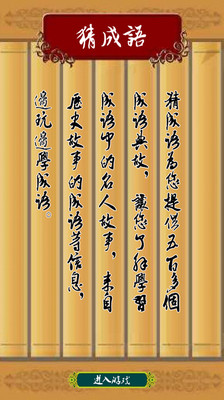 猜成語
猜成语為您提供五百多個
成语典故，讓您了解學習
成语中的名人故事，来自
歷史故事的成语等信息，
邊玩邊學成语。
进入游戏